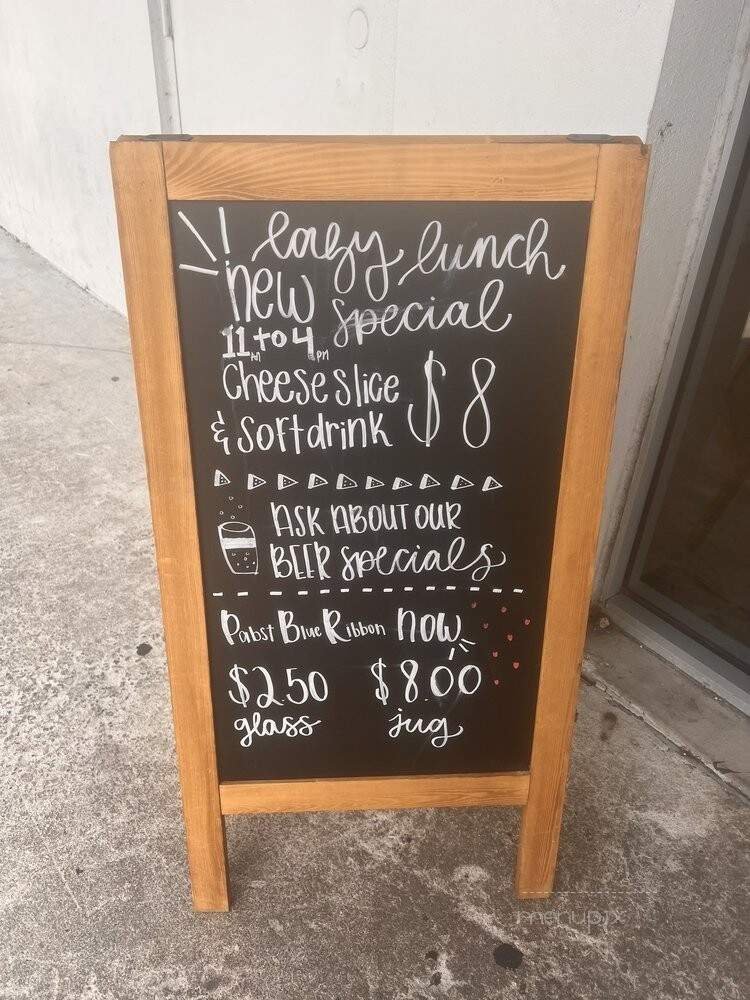 easy lunch
new special
11AM to 4PM
Cheese slice
& Softdrink $8
ASK ABOUT OUR
BEER specials
Pabst Blue Ribbon now
$2.50 $8.00
glass jug
menupix